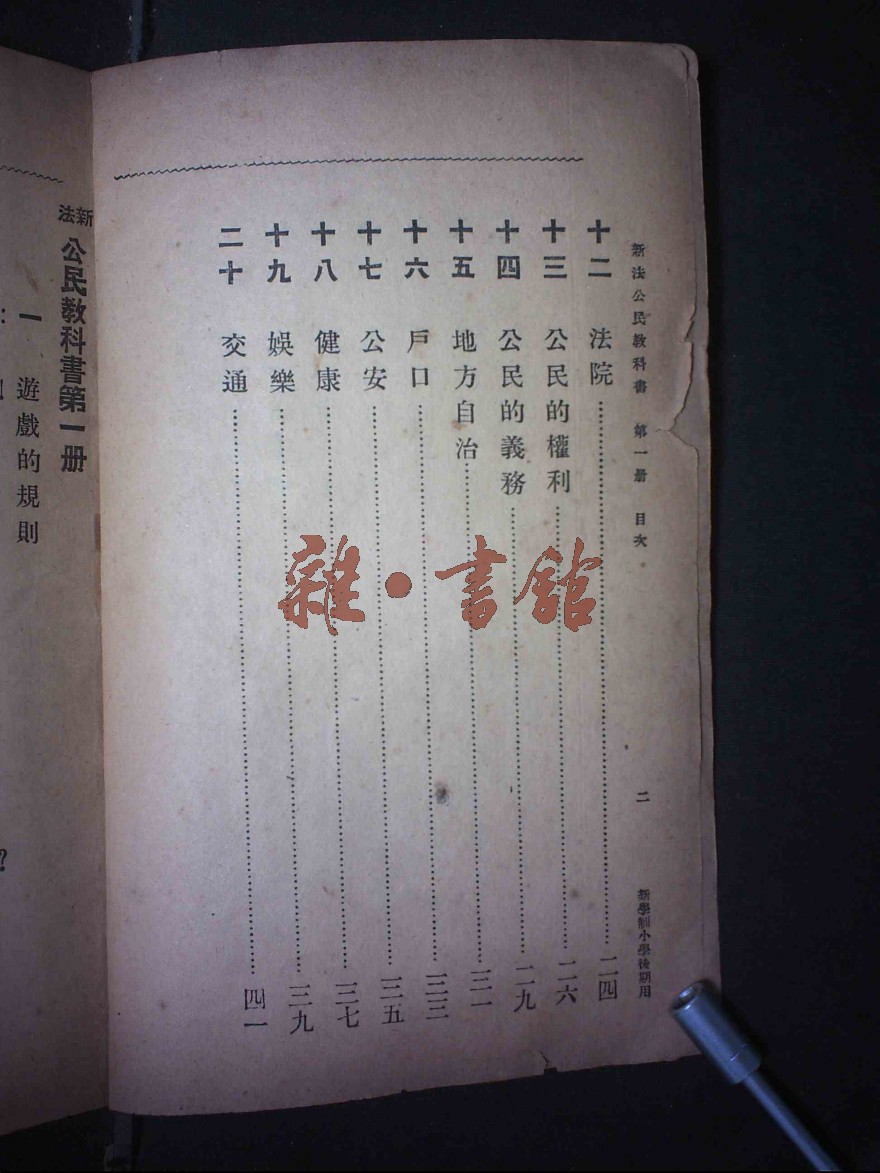 新法公民教科書 第一册 目次 二 新學制小學後期用
十二 法院……二四
十三 公民的權利……二六
十四 公民的義務……二九
十五 地方自治……三一
十六 戶口……三三
十七 公安……三五
十八 健康……三七
十九 娛樂……三九
二十 交通……四一
新法公民教科書第一册
一 遊戲的規則
?
雜·書館